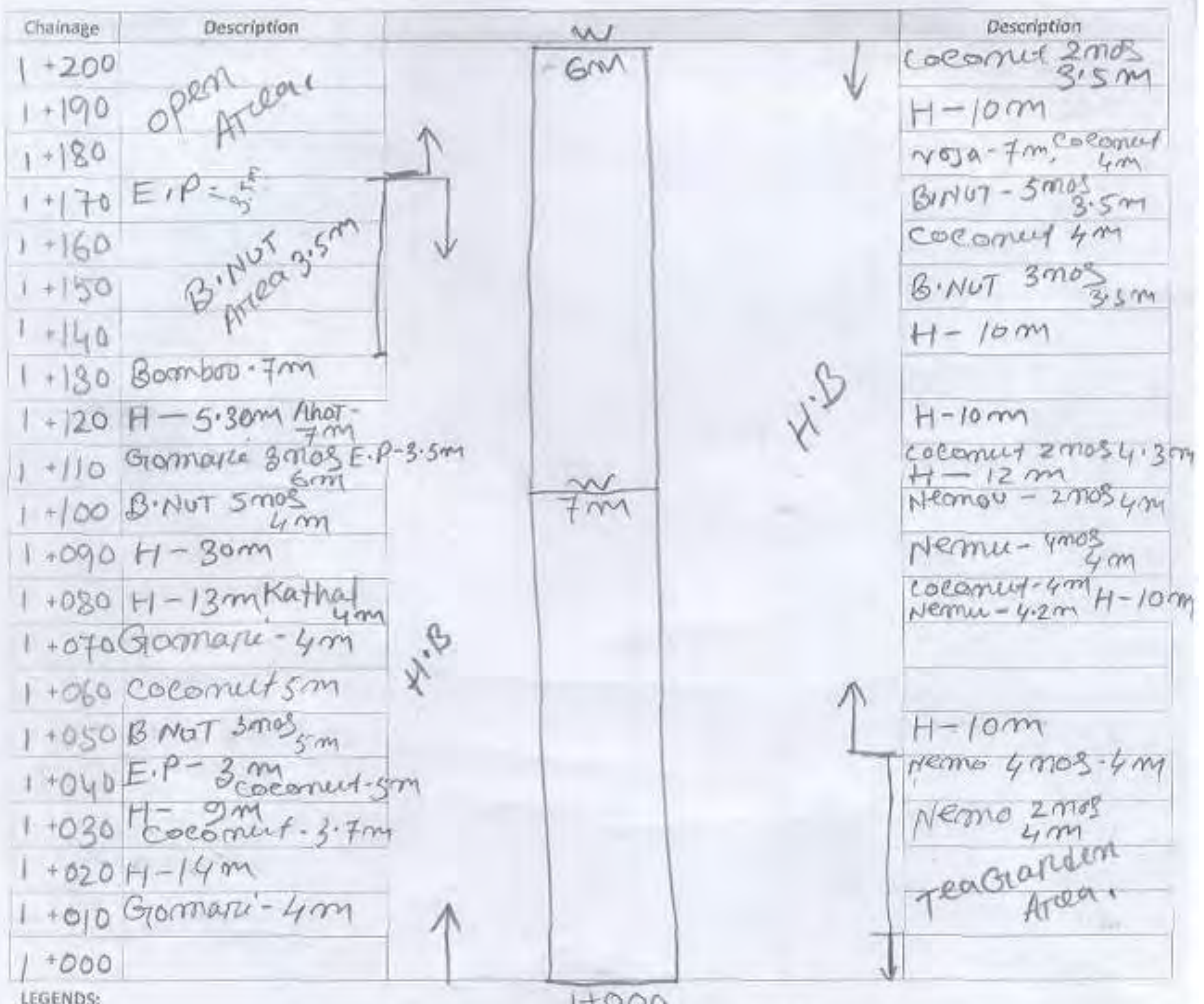 Chainage Description Description
W
1+200 6m Coconut 2nos 3.5m
open Area.
1+190 H-10m
1+180 7m, Coconut 4m
1+170 E.P = 3.5m B.NUT - 5nos 3.5m
1+160 Coconut 4m
B.NUT Area 3.5m
1+150 B.NUT 3nos 3.5m
1+140 H-10m
1+130 Bamboo - 7m
H.B
1+120 H-5.30m Ahot-7m H-10m
1+110 Gomari 3nos 6m E.P-3.5m Coconut 2nos 4.3m H-12m
W
1+100 B.NUT 5nos 4m 7m 2nos 4m
1+090 H-30m Nemu-4nos 4m
1+080 H-13m Kathal 4m Coconut-4m Nemu-4.2m H-10m
1+070 Gomari-4m
H.B
1+060 Coconut 5m
1+050 B NUT 3nos 5m H-10m
1+040 E.P-3m Coconut-5m Nemo 4nos-4m
1+030 H-9m Coconut-3.7m Nemo 2nos 4m
1+020 H-14m
Tea Garden Area.
1+010 Gomari-4m
1+000
LEGENDS: 1+000